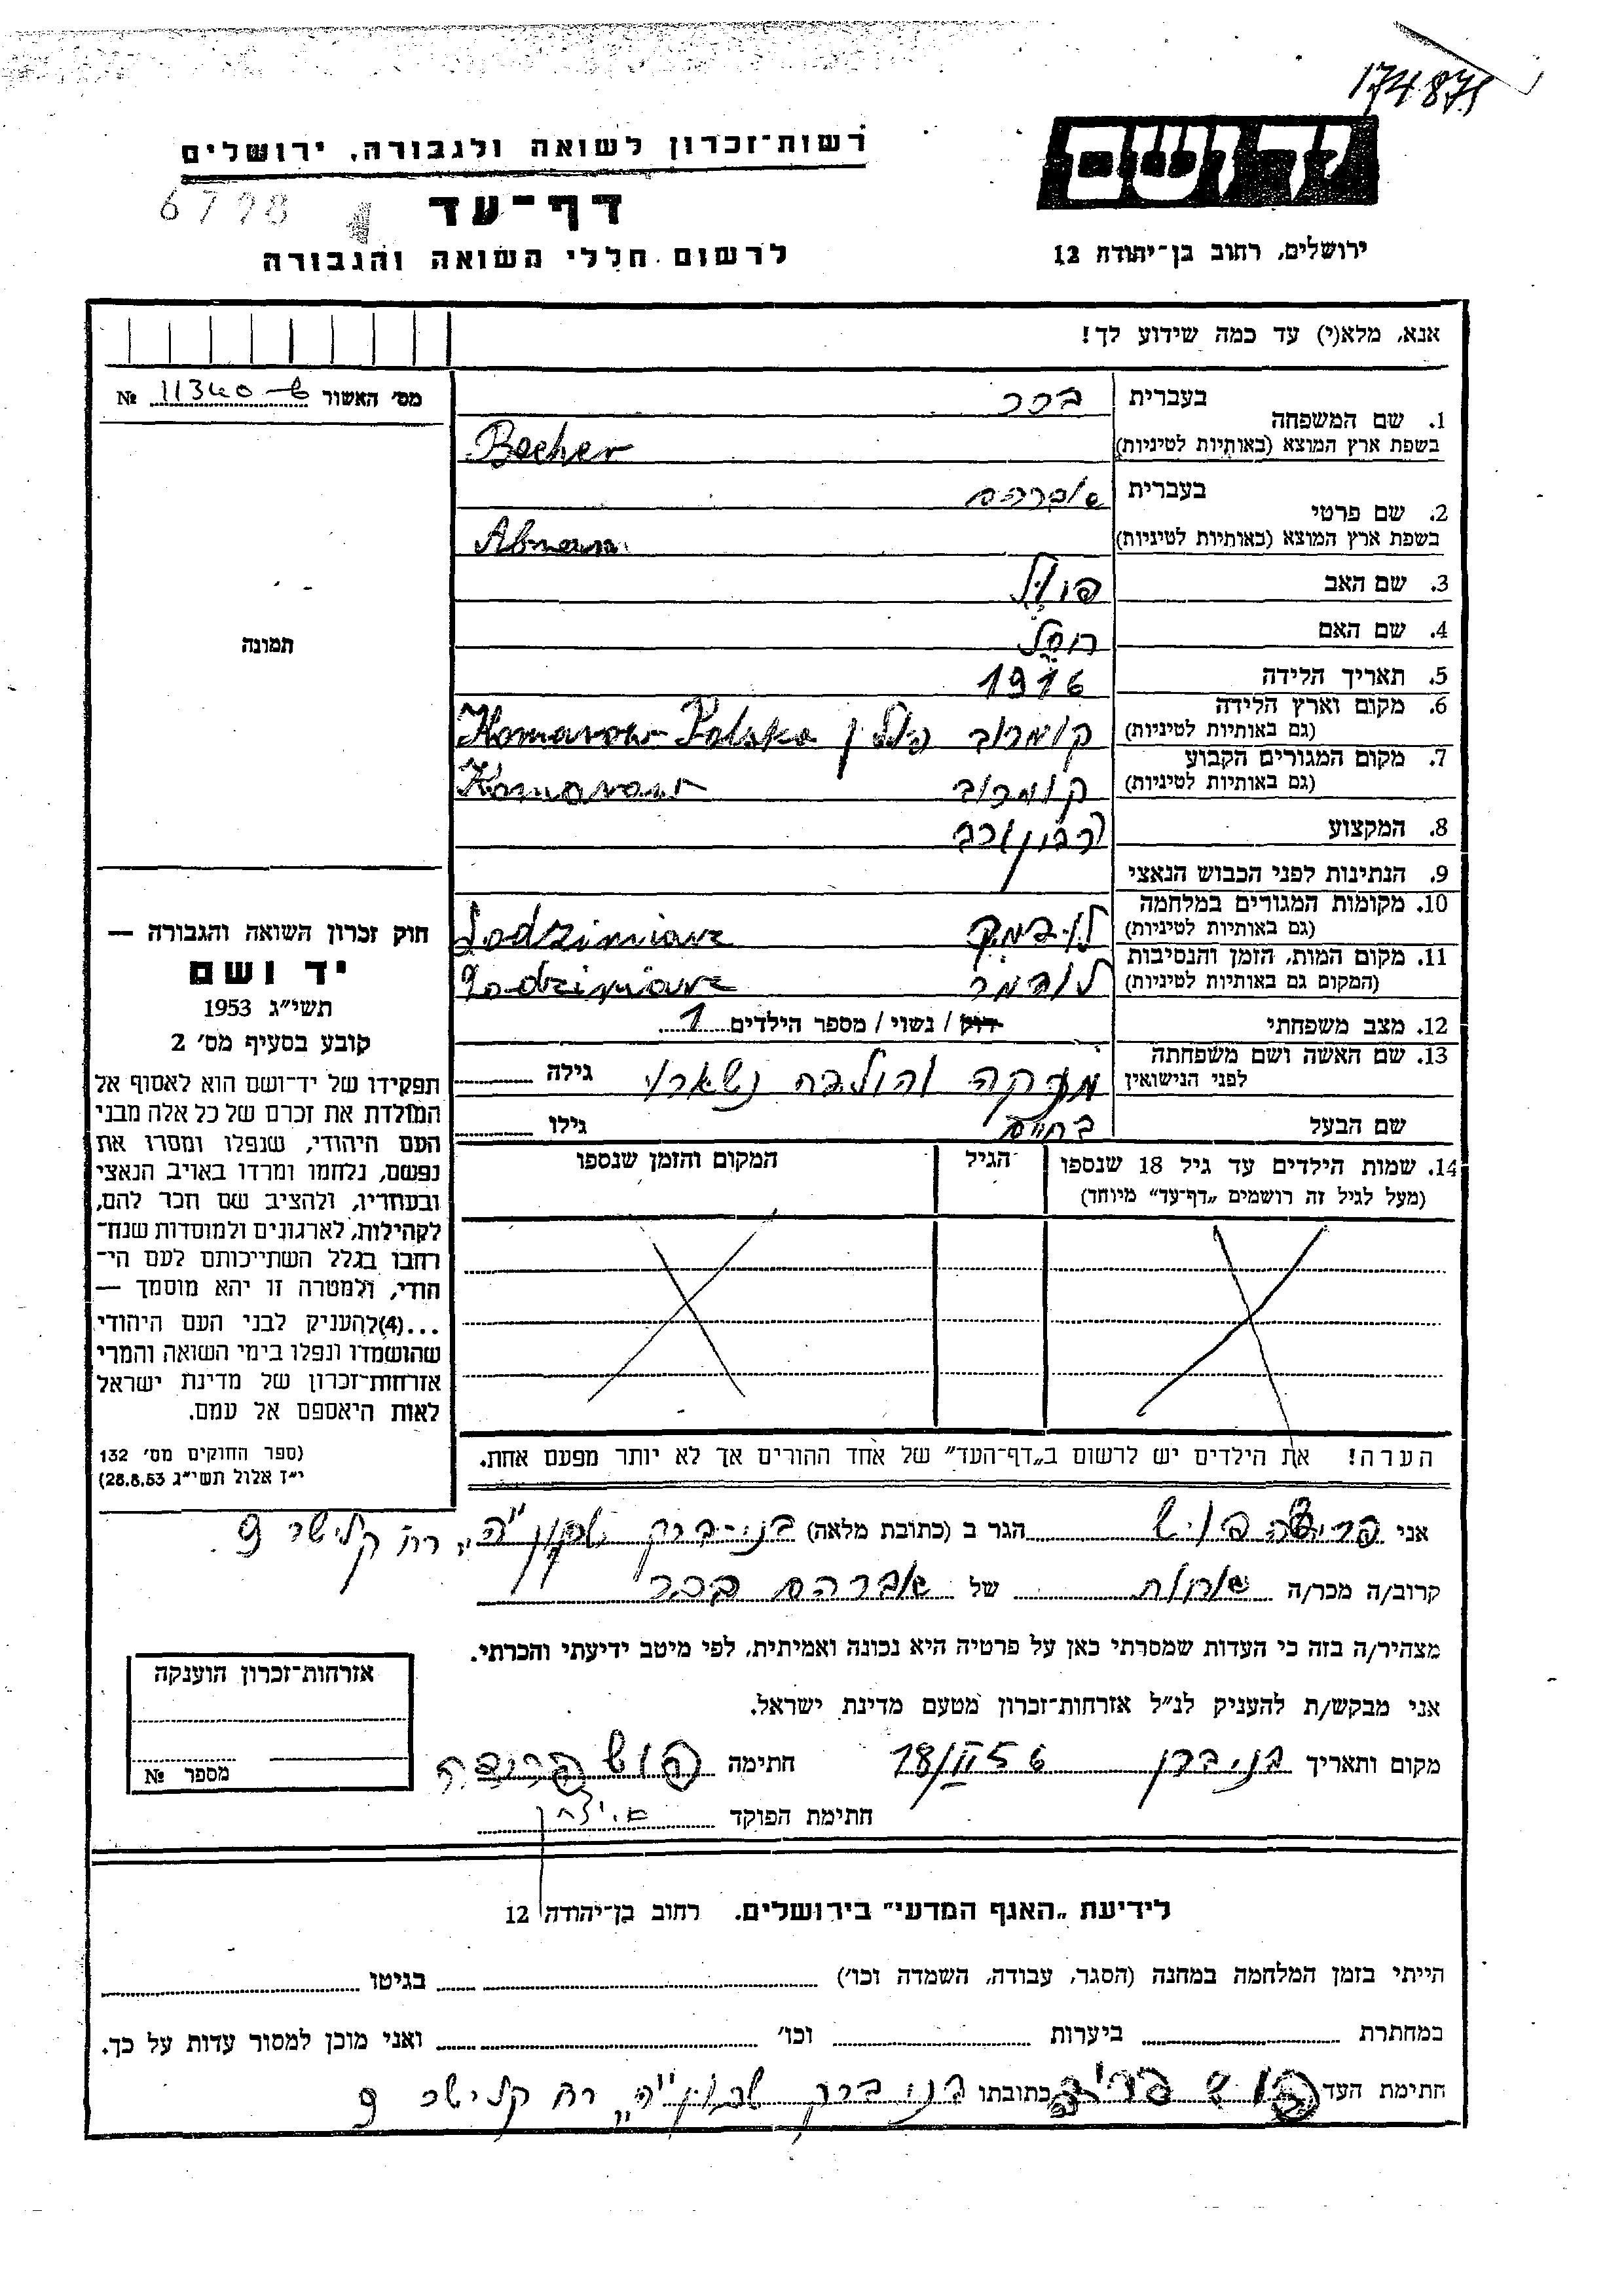 174871
רשות־זכרון לשואה ולגבורה, ירושלים
יד ושם
6798
דף־עד
ירושלים, רחוב בן־יהודה 12
לרשום חללי השואה והגבורה
אנא, מלא(י) עד כמה שידוע לך!
מס' האשור № 11340
1. שם המשפחה
בעברית בכר
בשפת ארץ המוצא (באותיות לטיניות) Becher
2. שם פרטי
בעברית אברהם
בשפת ארץ המוצא (באותיות לטיניות) Abram
3. שם האב
4. שם האם רחל
5. תאריך הלידה 1916
6. מקום וארץ הלידה
(גם באותיות לטיניות) קומרוב פולין Komarow Polska
7. מקום המגורים הקבוע
(גם באותיות לטיניות) קומרוב Komarow
8. המקצוע
9. הנתינות לפני הכבוש הנאצי
10. מקומות המגורים במלחמה
(גם באותיות לטיניות) Lodzimierz
11. מקום המות, הזמן והנסיבות
(המקום גם באותיות לטיניות) Lodzimierz
12. מצב משפחתי
רוק / נשוי / מספר הילדים 1
13. שם האשה ושם משפחתה
לפני הנישואין והילדה נשארו גילה
שם הבעל בחיים גילו
14. שמות הילדים עד גיל 18 שנספו
(מעל לגיל זה רושמים „דף־עד” מיוחד)
הגיל
המקום והזמן שנספו
הערה! את הילדים יש לרשום ב„דף־העד” של אחד ההורים אך לא יותר מפעם אחת.
תמונה
חוק זכרון השואה והגבורה —
יד ושם
תשי״ג 1953
קובע בסעיף מס' 2
תפקידו של יד־ושם הוא לאסוף אל
המולדת את זכרם של כל אלה מבני
העם היהודי, שנפלו ומסרו את
נפשם, נלחמו ומרדו באויב הנאצי
ובעוזריו, ולהציב שם וזכר להם,
לקהילות, לארגונים ולמוסדות שנח־
רבו בגלל השתייכותם לעם הי־
הודי, ולמטרה זו יהא מוסמך —
...(4)להעניק לבני העם היהודי
שהושמדו ונפלו בימי השואה והמרי
אזרחות־זכרון של מדינת ישראל
לאות היאספם אל עמם.
(ספר החוקים מס' 132
י״ז אלול תשי״ג 28.8.53)
אני פרידה בוש הגר ב (כתובת מלאה) בני-ברק שכון ״ה״ רח קלישר 9
קרוב/ה מכר/ה אחות של אברהם בכר
מצהיר/ה בזה כי העדות שמסרתי כאן על פרטיה היא נכונה ואמיתית, לפי מיטב ידיעתי והכרתי.
אני מבקש/ת להעניק לנ״ל אזרחות־זכרון מטעם מדינת ישראל.
מקום ותאריך בני ברק 18/II 56 חתימה בוש פרידה
חתימת הפוקד
אזרחות־זכרון הוענקה
מספר №
לידיעת „האגף המדעי” בירושלים. רחוב בן־יהודה 12
הייתי בזמן המלחמה במחנה (הסגר, עבודה, השמדה וכו') בגיטו
במחתרת ביערות וכו' ואני מוכן למסור עדות על כך.
חתימת העד בוש פרידה כתובתו בני ברק שכון ״ה״ רח קלישר 9